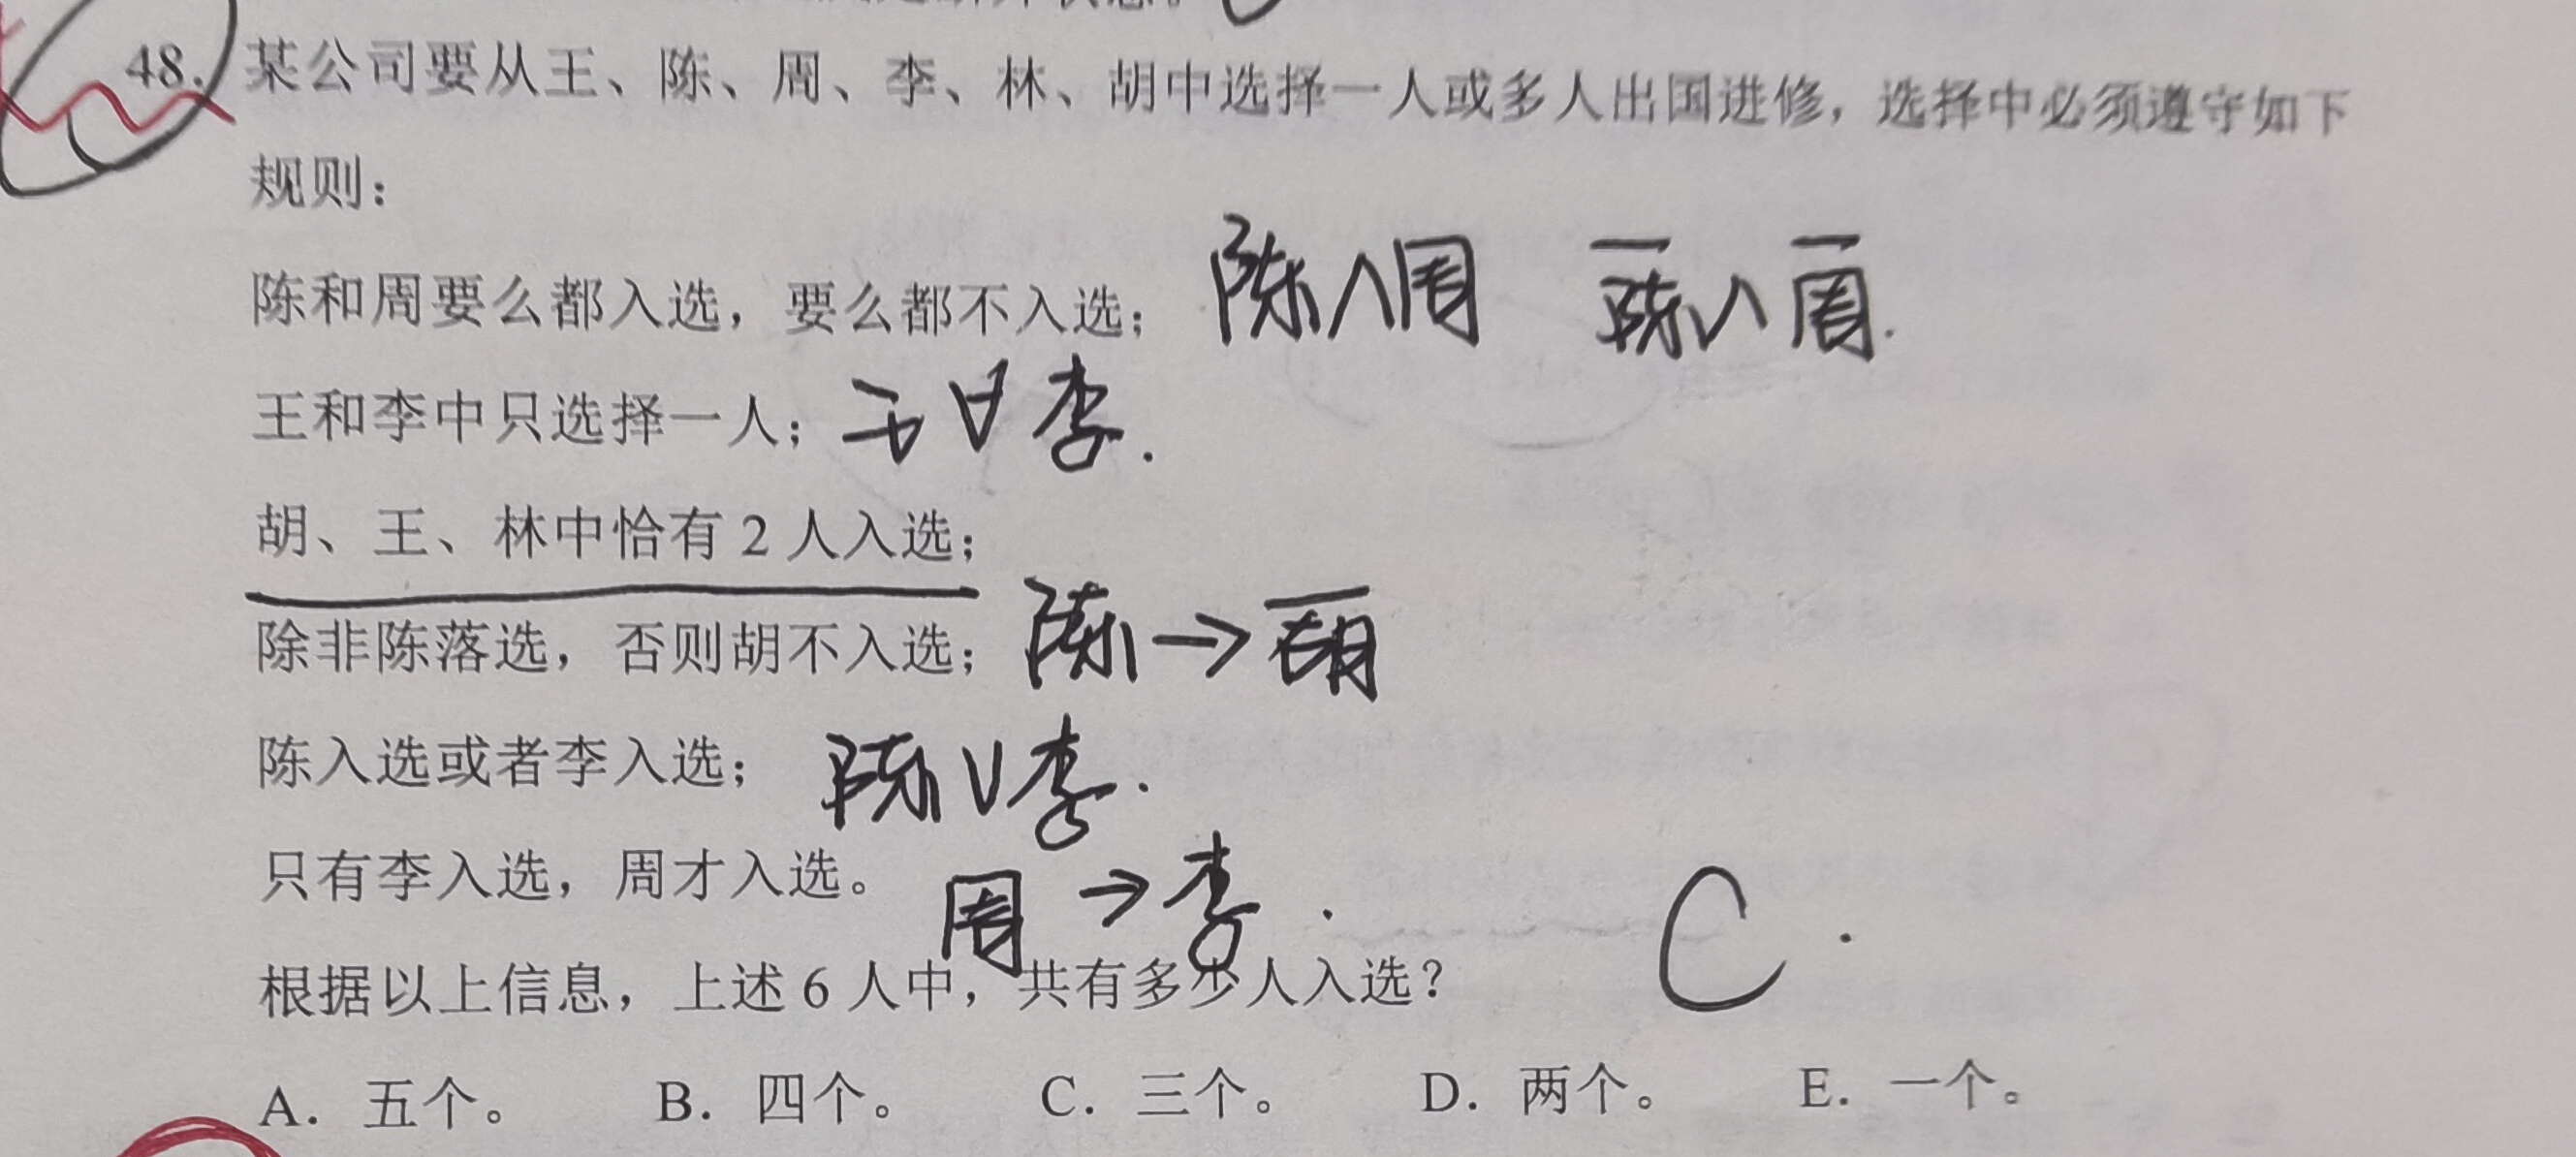 48. 某公司要从王、陈、周、李、林、胡中选择一人或多人出国进修，选择中必须遵守如下
规则：
陈和周要么都入选，要么都不入选； 陈∧周 陈∧周.
王和李中只选择一人； 王∀李.
胡、王、林中恰有 2 人入选；
除非陈落选，否则胡不入选； 陈→胡
陈入选或者李入选； 陈∨李.
只有李入选，周才入选。 周→李.
根据以上信息，上述 6 人中，共有多少人入选？ C.
A. 五个。 B. 四个。 C. 三个。 D. 两个。 E. 一个。